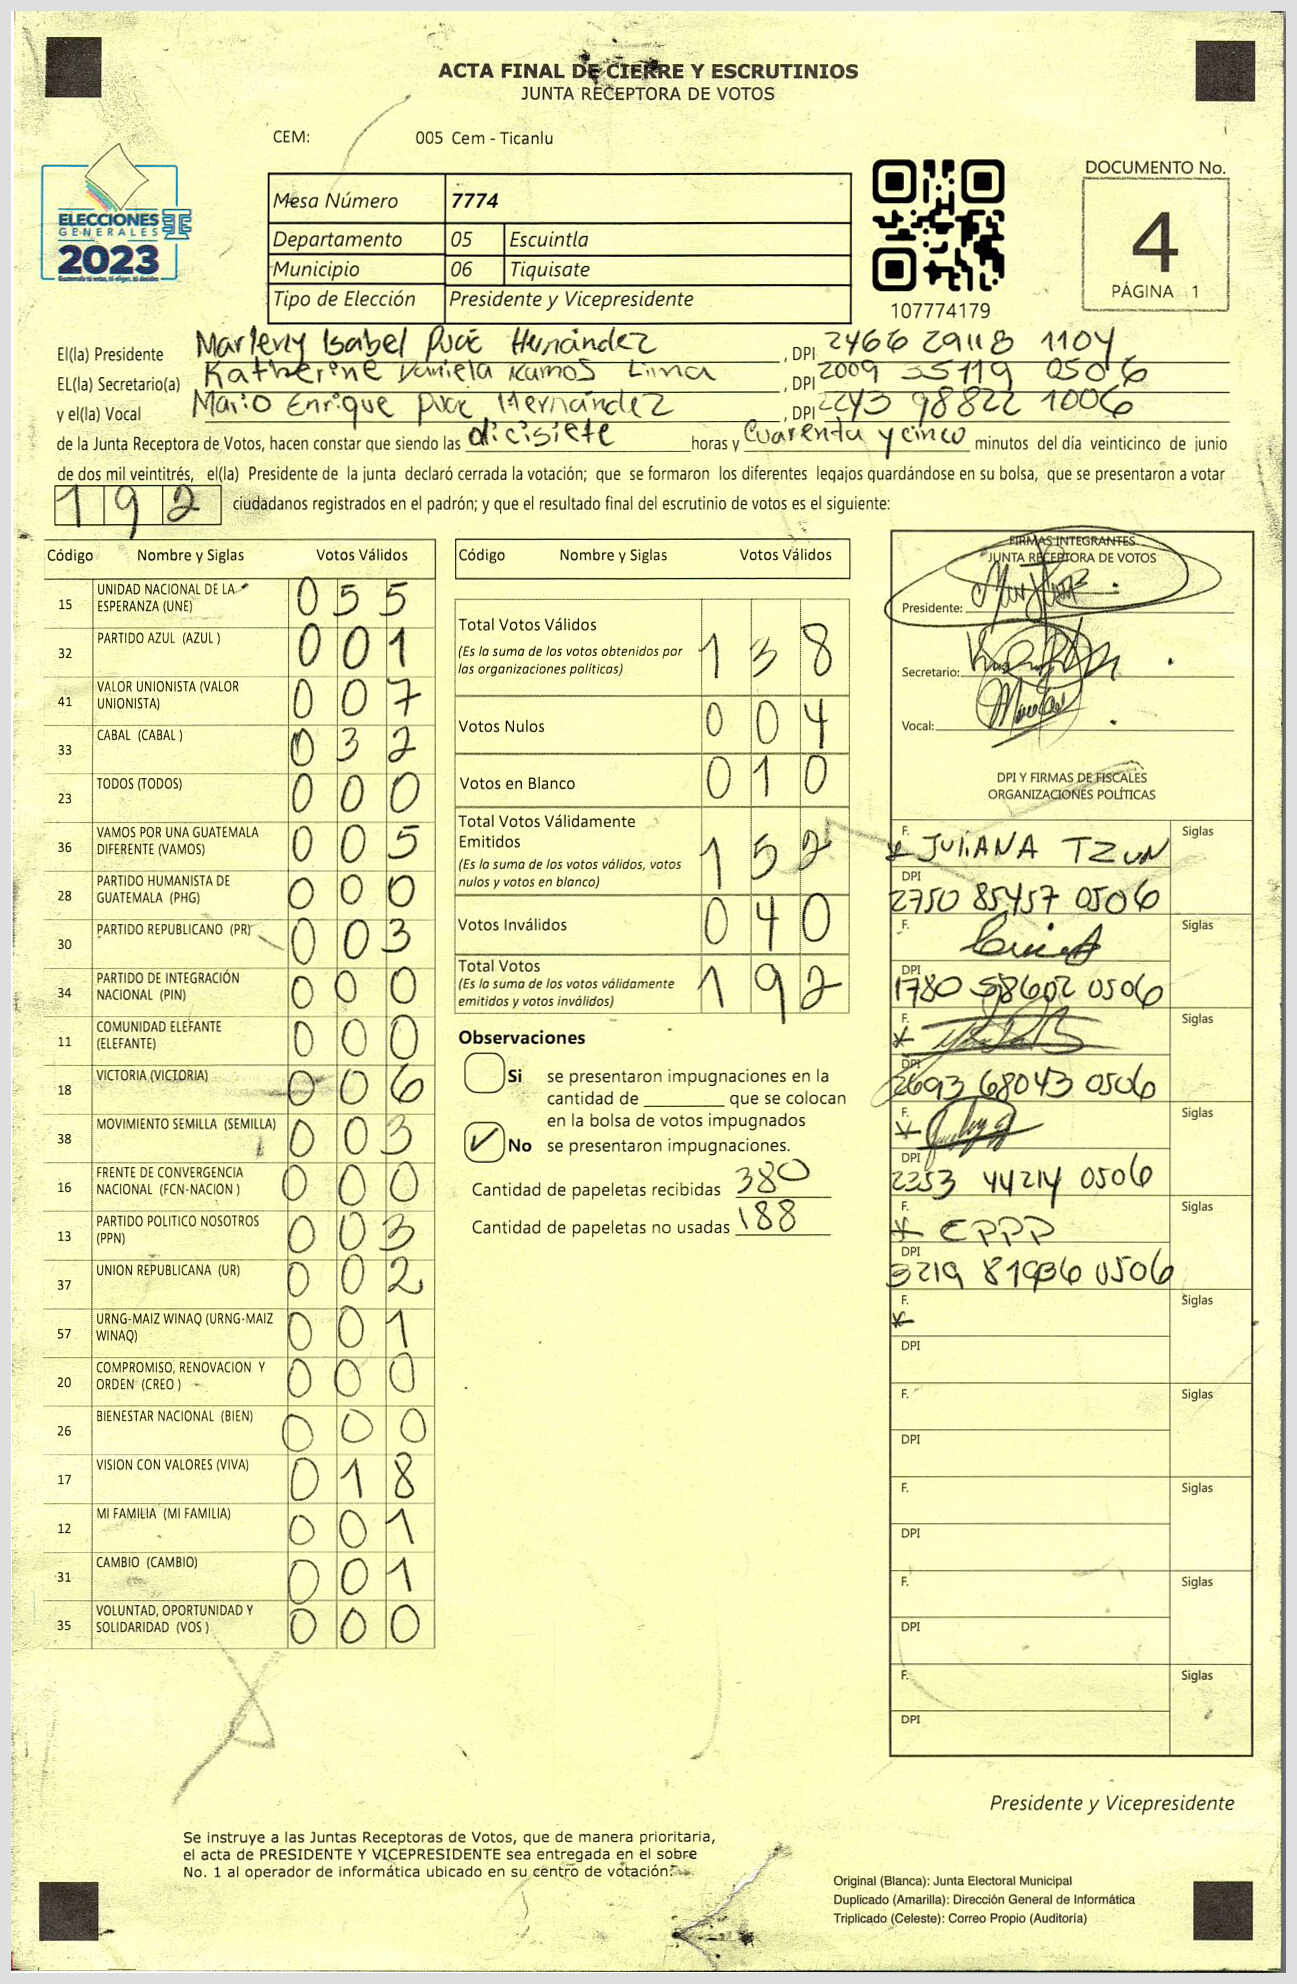 ACTA FINAL DE CIERRE Y ESCRUTINIOS
JUNTA RECEPTORA DE VOTOS
CEM: 005 Cem - Ticanlu
ELECCIONES
GENERALES
2023
Mesa Número 7774
Departamento 05 Escuintla
Municipio 06 Tiquisate
Tipo de Elección Presidente y Vicepresidente
107774179
DOCUMENTO No.
4
PÁGINA 1
El(la) Presidente Isabel Hernández , DPI 2466 29118 1104
EL(la) Secretario(a) Katherine Daniela Ramos Lima , DPI 2009 35719 0506
y el(la) Vocal Mario Enrique Hernández , DPI 2243 98822 1006
de la Junta Receptora de Votos, hacen constar que siendo las dicisiete horas y cuarenta y cinco minutos del día veinticinco de junio
de dos mil veintitrés, el(la) Presidente de la junta declaró cerrada la votación; que se formaron los diferentes legajos guardándose en su bolsa, que se presentaron a votar
192 ciudadanos registrados en el padrón; y que el resultado final del escrutinio de votos es el siguiente:
Código Nombre y Siglas Votos Válidos
15 UNIDAD NACIONAL DE LA ESPERANZA (UNE) 055
32 PARTIDO AZUL (AZUL ) 001
41 VALOR UNIONISTA (VALOR UNIONISTA) 007
33 CABAL (CABAL ) 032
23 TODOS (TODOS) 000
36 VAMOS POR UNA GUATEMALA DIFERENTE (VAMOS) 005
28 PARTIDO HUMANISTA DE GUATEMALA (PHG) 000
30 PARTIDO REPUBLICANO (PR) 003
34 PARTIDO DE INTEGRACIÓN NACIONAL (PIN) 000
11 COMUNIDAD ELEFANTE (ELEFANTE) 000
18 VICTORIA (VICTORIA) 006
38 MOVIMIENTO SEMILLA (SEMILLA) 003
16 FRENTE DE CONVERGENCIA NACIONAL (FCN-NACION ) 000
13 PARTIDO POLITICO NOSOTROS (PPN) 003
37 UNION REPUBLICANA (UR) 002
57 URNG-MAIZ WINAQ (URNG-MAIZ WINAQ) 001
20 COMPROMISO, RENOVACION Y ORDEN (CREO ) 000
26 BIENESTAR NACIONAL (BIEN) 000
17 VISION CON VALORES (VIVA) 018
12 MI FAMILIA (MI FAMILIA) 001
31 CAMBIO (CAMBIO) 001
35 VOLUNTAD, OPORTUNIDAD Y SOLIDARIDAD (VOS ) 000
Código Nombre y Siglas Votos Válidos
Total Votos Válidos 138
(Es la suma de los votos obtenidos por
las organizaciones políticas)
Votos Nulos 004
Votos en Blanco 010
Total Votos Válidamente
Emitidos 152
(Es la suma de los votos válidos, votos
nulos y votos en blanco)
Votos Inválidos 040
Total Votos 192
(Es la suma de los votos válidamente
emitidos y votos inválidos)
Observaciones
Si se presentaron impugnaciones en la
cantidad de ________ que se colocan
en la bolsa de votos impugnados
No se presentaron impugnaciones.
Cantidad de papeletas recibidas 380
Cantidad de papeletas no usadas 188
FIRMAS INTEGRANTES
JUNTA RECEPTORA DE VOTOS
Presidente:
Secretario:
Vocal:
DPI Y FIRMAS DE FISCALES
ORGANIZACIONES POLÍTICAS
F. JULIANA TZUN Siglas
DPI 2750 85457 0506
F. Siglas
DPI 1780 58602 0506
F. Siglas
DPI 2693 68043 0506
F. Siglas
DPI 2353 44214 0506
F. Siglas
DPI 3219 81936 0506
F. Siglas
DPI
F. Siglas
DPI
F. Siglas
DPI
F. Siglas
DPI
F. Siglas
DPI
Presidente y Vicepresidente
Se instruye a las Juntas Receptoras de Votos, que de manera prioritaria,
el acta de PRESIDENTE Y VICEPRESIDENTE sea entregada en el sobre
No. 1 al operador de informática ubicado en su centro de votación.
Original (Blanca): Junta Electoral Municipal
Duplicado (Amarilla): Dirección General de Informática
Triplicado (Celeste): Correo Propio (Auditoría)